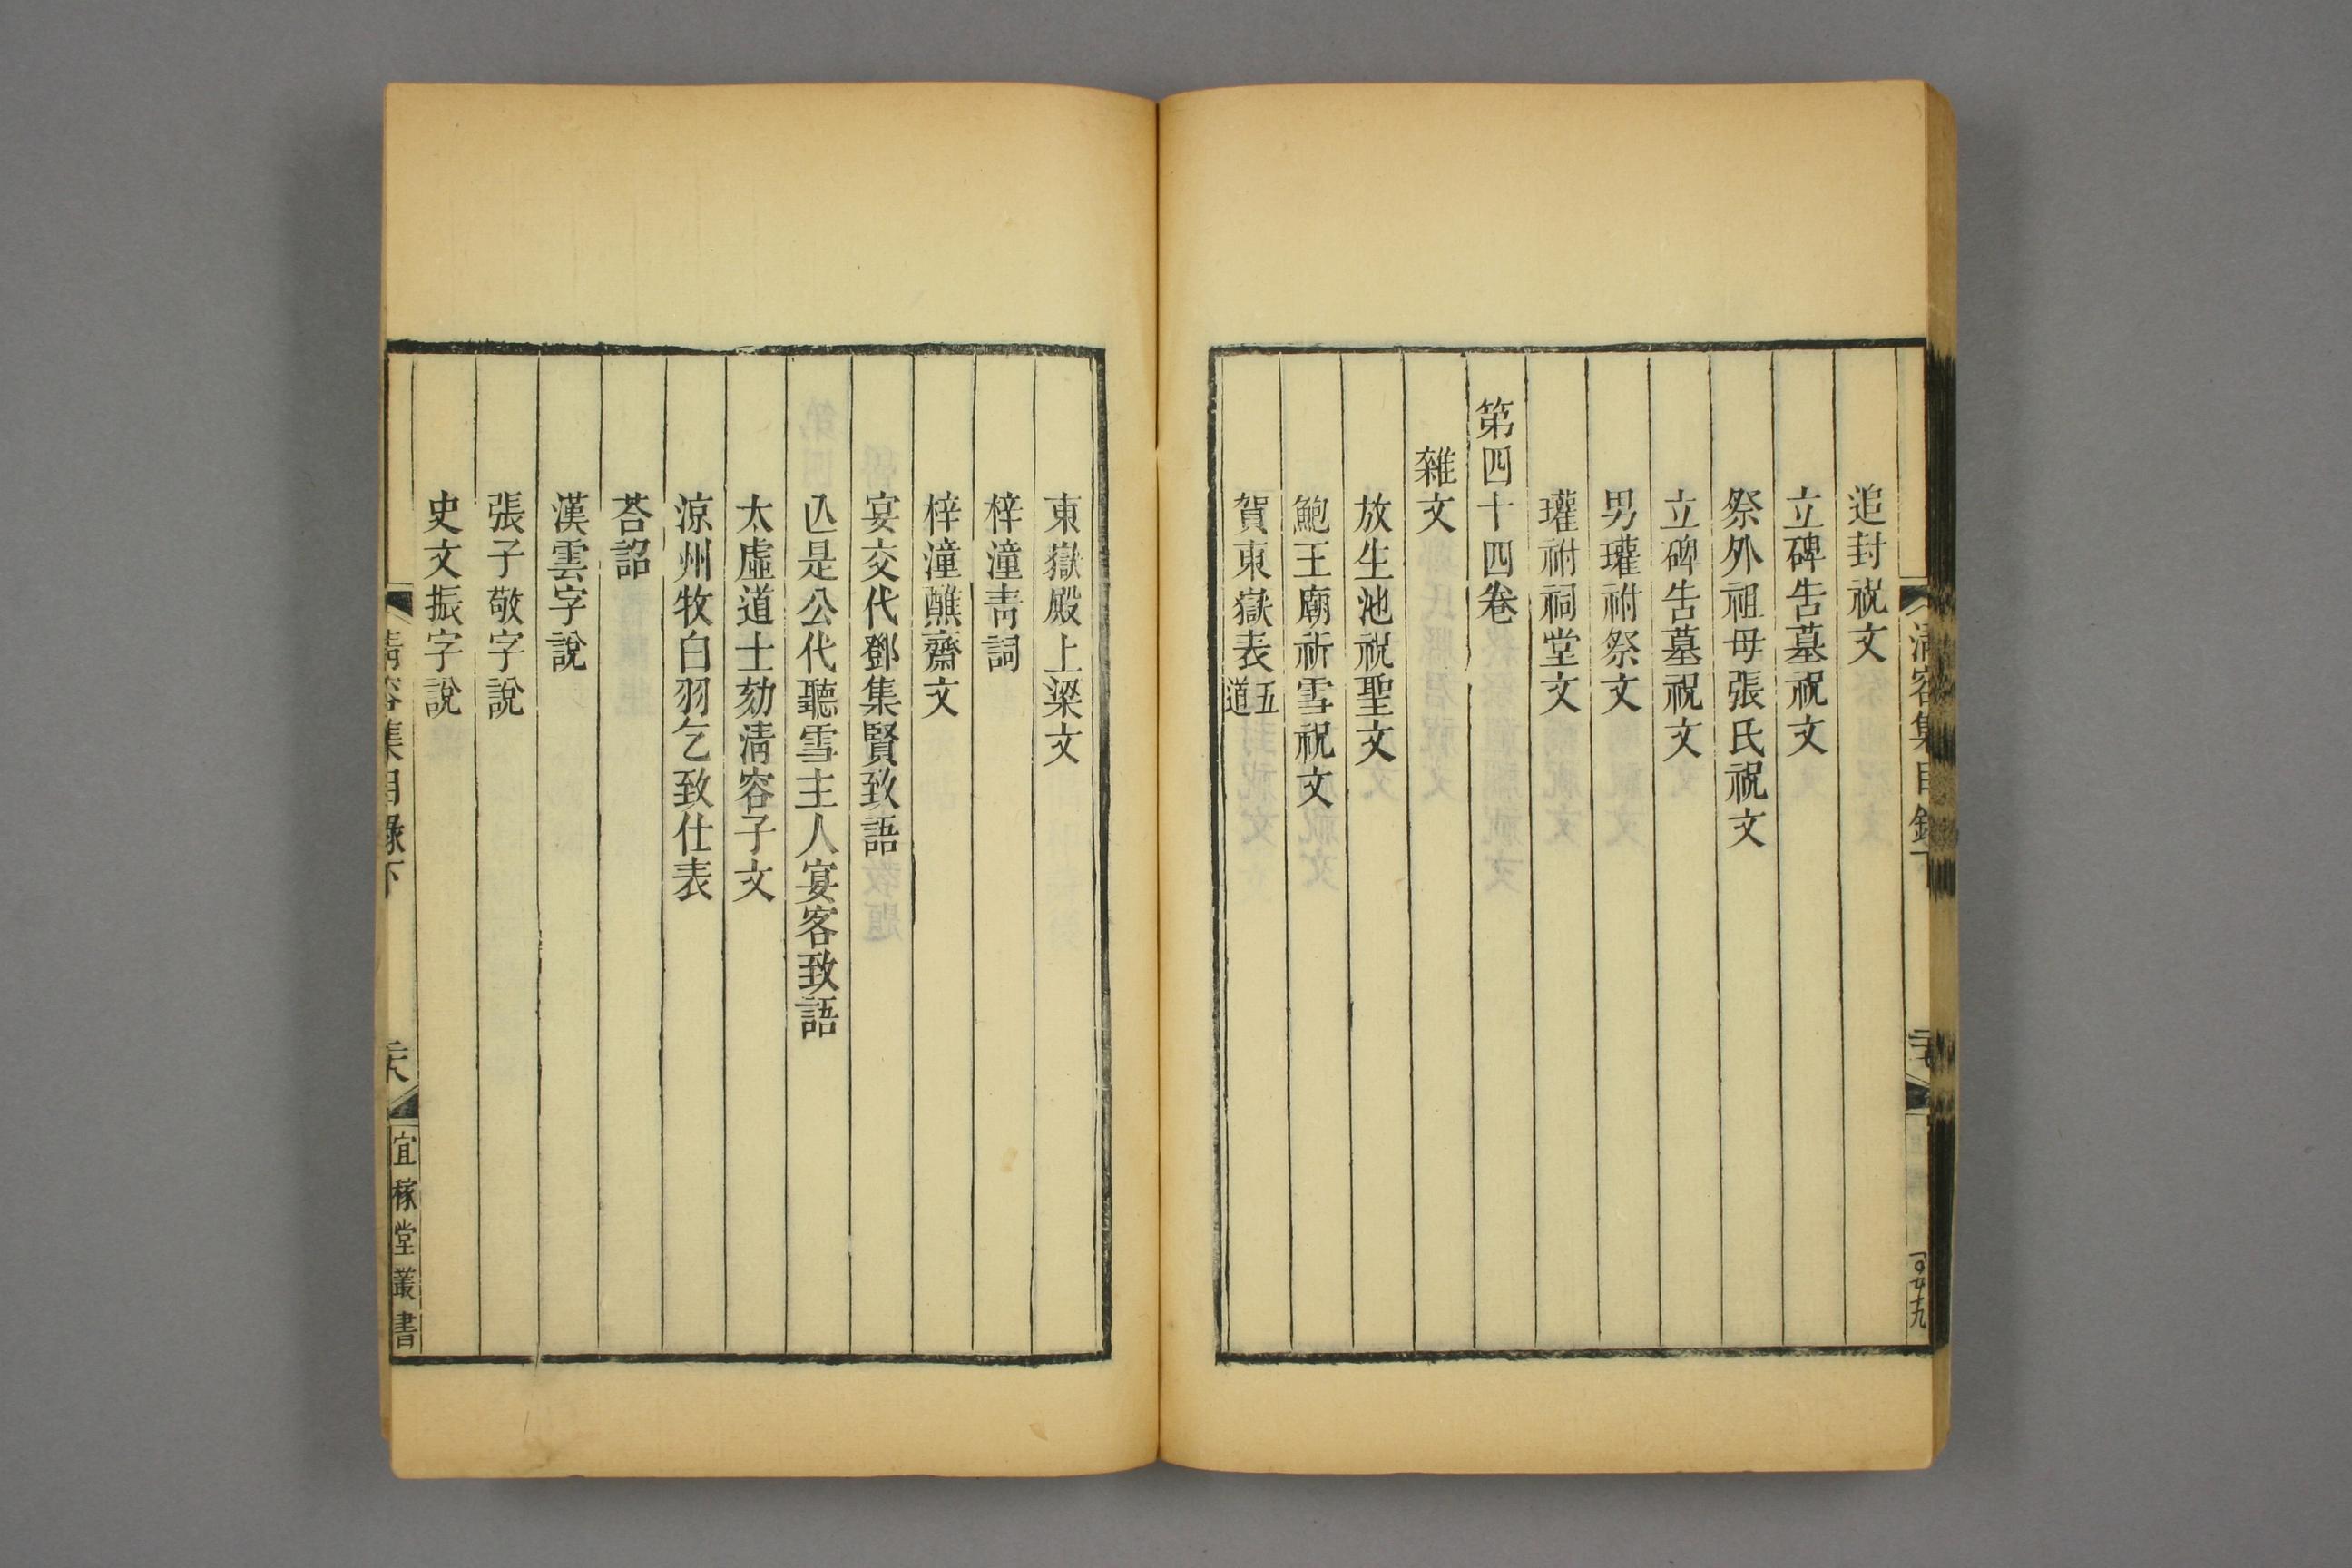 追封祝文
立碑告墓祝文
祭外祖母張氏祝文
立碑告墓祝文
男瓘祔祭文
瓘祔祠堂文
第四十四卷
雜文
放生池祝聖文
鮑王廟祈雪祝文
賀東嶽表五道
東嶽殿上梁文
梓潼青詞
梓潼醮齋文
宴交代鄧集賢致語
亾是公代聽雪主人宴客致語
太虛道士劾清容子文
涼州牧白羽乞致仕表
荅詔
漢雲字說
張子敬字說
史文振字說
清容集目錄下
宜稼堂叢書